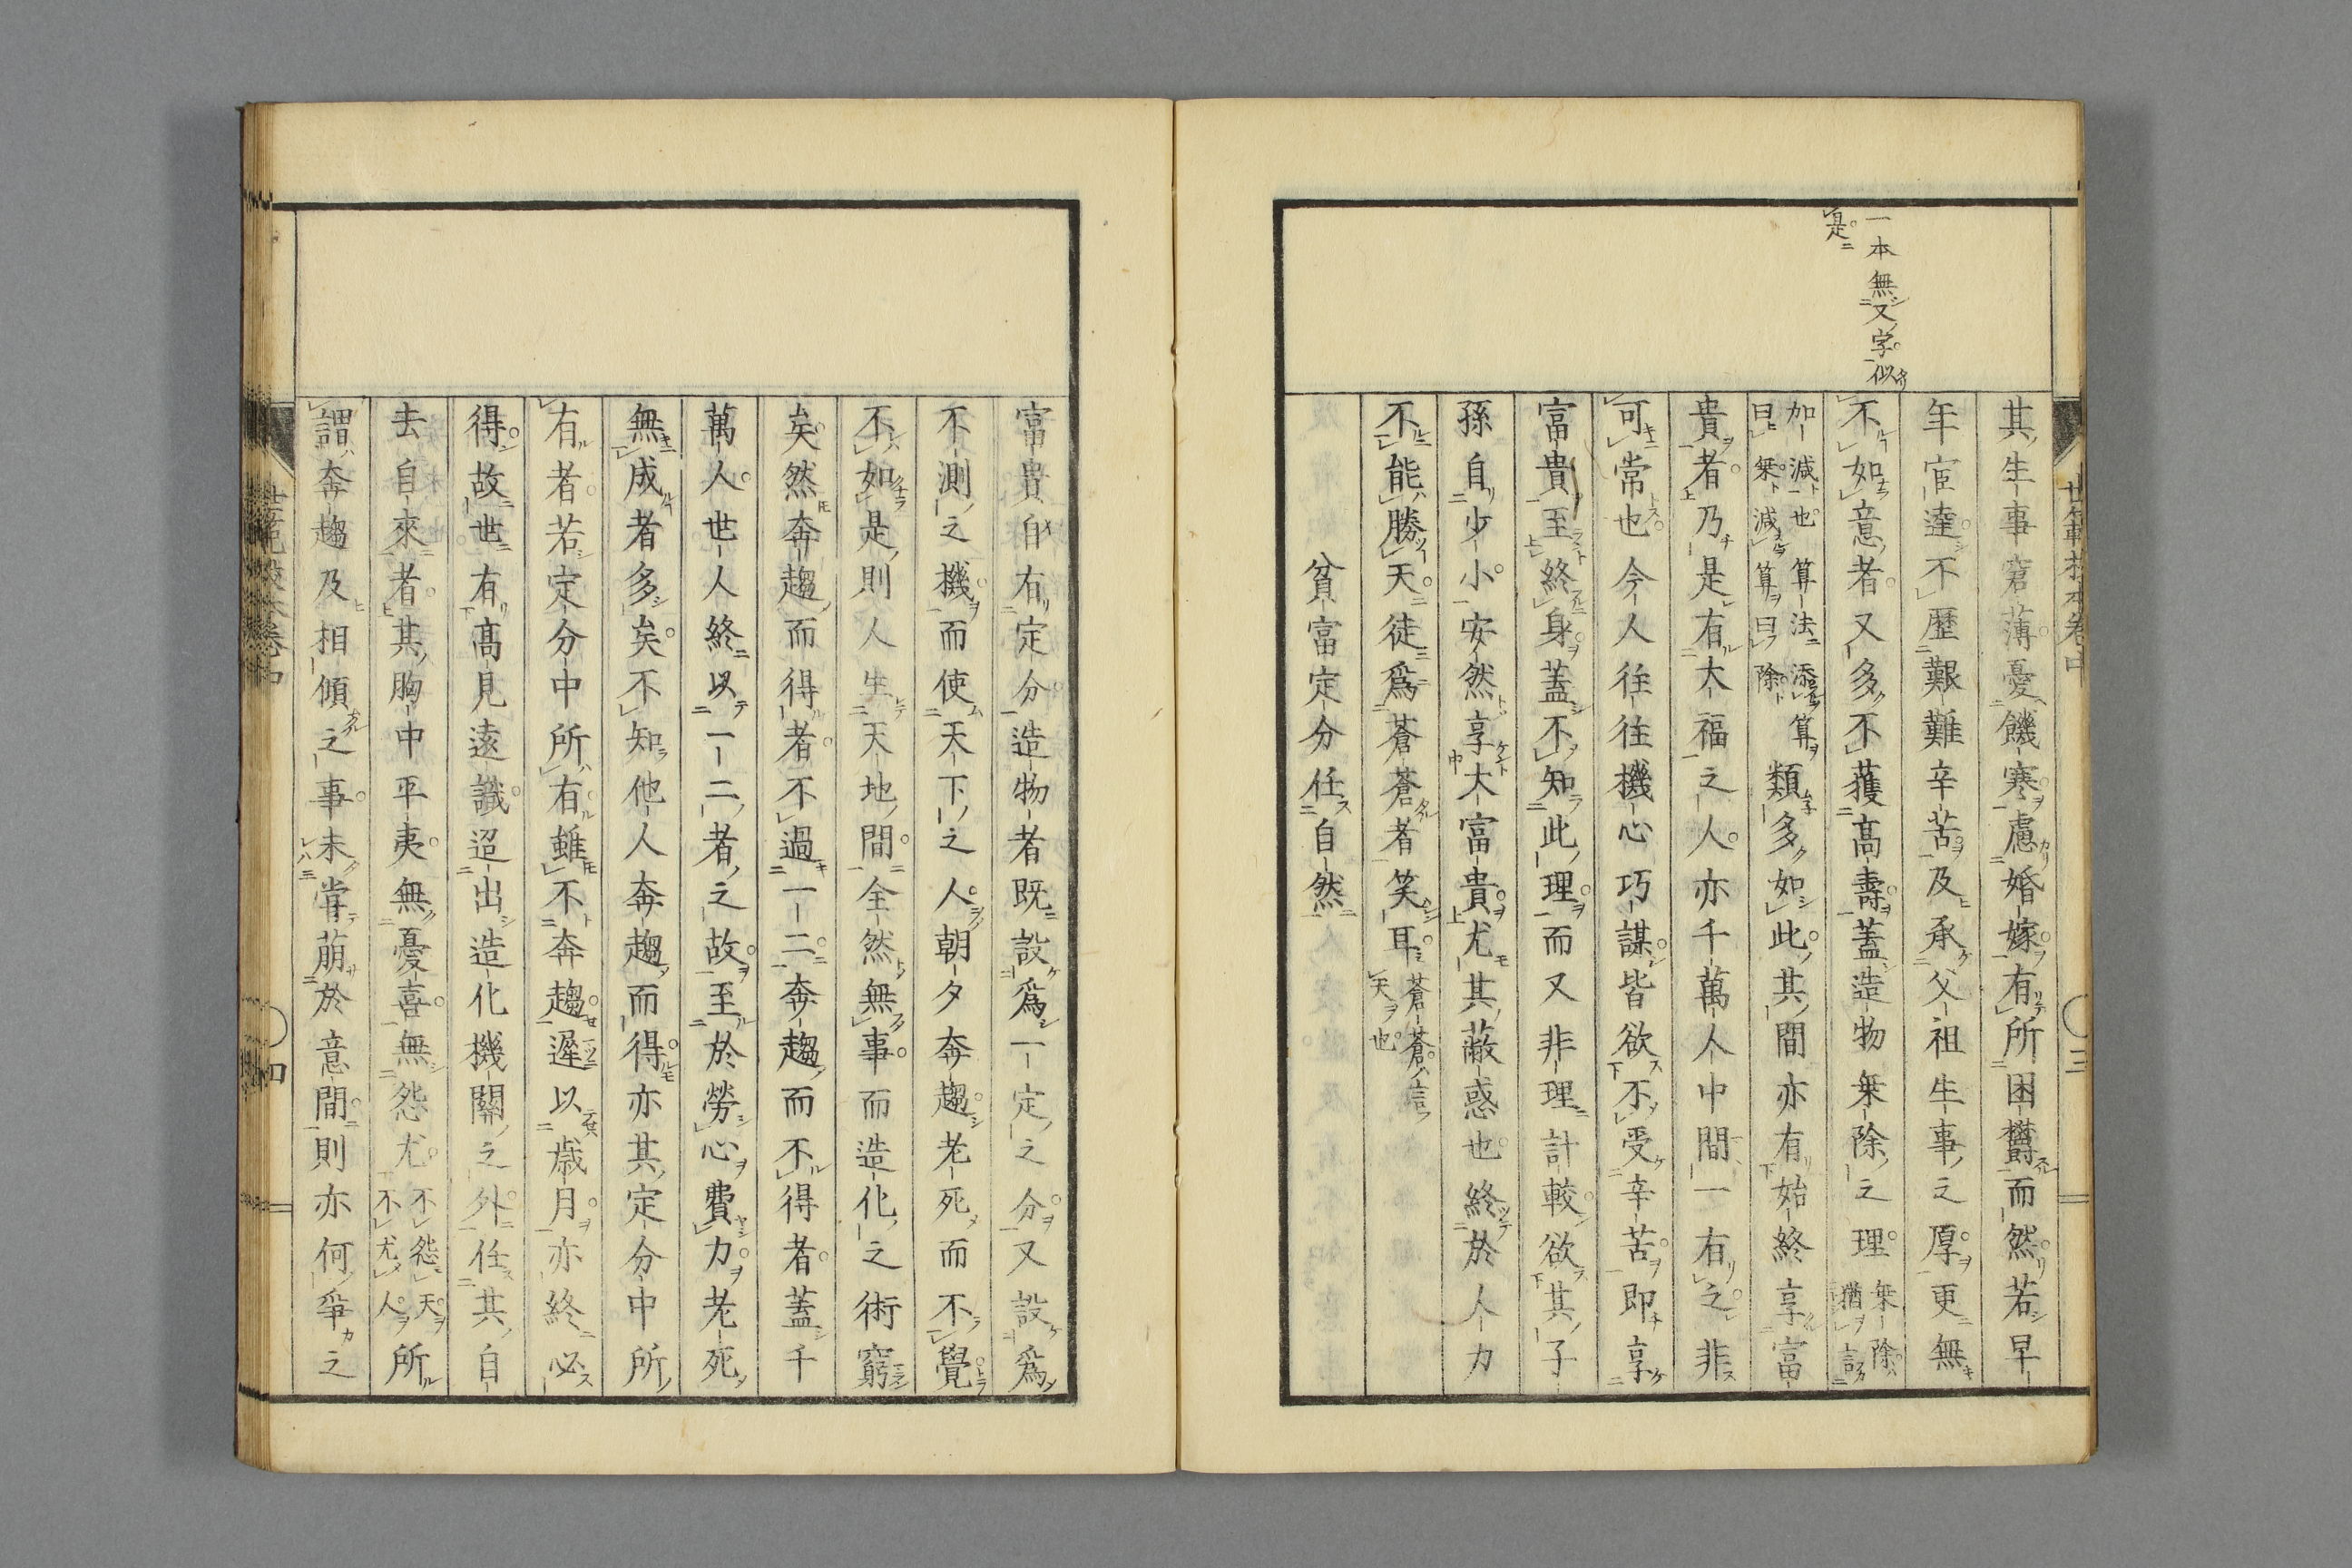 一本無又字似
是
其生事窘薄憂饑寒慮婚嫁有所困欝而然若早
年宦達不歷艱難辛苦及承父祖生事之厚更無
不如意者又多不獲高壽蓋造物椉除之理椉除猶言
加減也算法添算曰椉減算曰除類多如此其間亦有始終享富
貴者乃是有大福之人亦千萬人中間一有之非
可常也今人往往機心巧謀皆欲不受辛苦即享
富貴至終身蓋不知此理而又非理計較欲其子
孫自少小安然享大富貴尤其蔽惑也終於人力
不能勝天徒爲蒼蒼者笑耳蒼蒼言天也
貧富定分任自然
富貴自有定分造物者既設爲一定之分又設爲
不測之機而使天下之人朝夕奔趨老死而不覺
不如是則人生天地間全然無事而造化之術窮
矣然奔趨而得者不過一二奔趨而不得者蓋千
萬人世人終以一二者之故至於勞心費力老死
無成者多矣不知他人奔趨而得亦其定分中所
有者若定分中所有雖不奔趨遲以歳月亦終必
得故世有高見遠識迢出造化機關之外任其自
去自來者其胸中平夷無憂喜無怨尤不怨天不尤人所
謂奔趨及相傾之事未嘗萠於意間則亦何爭之